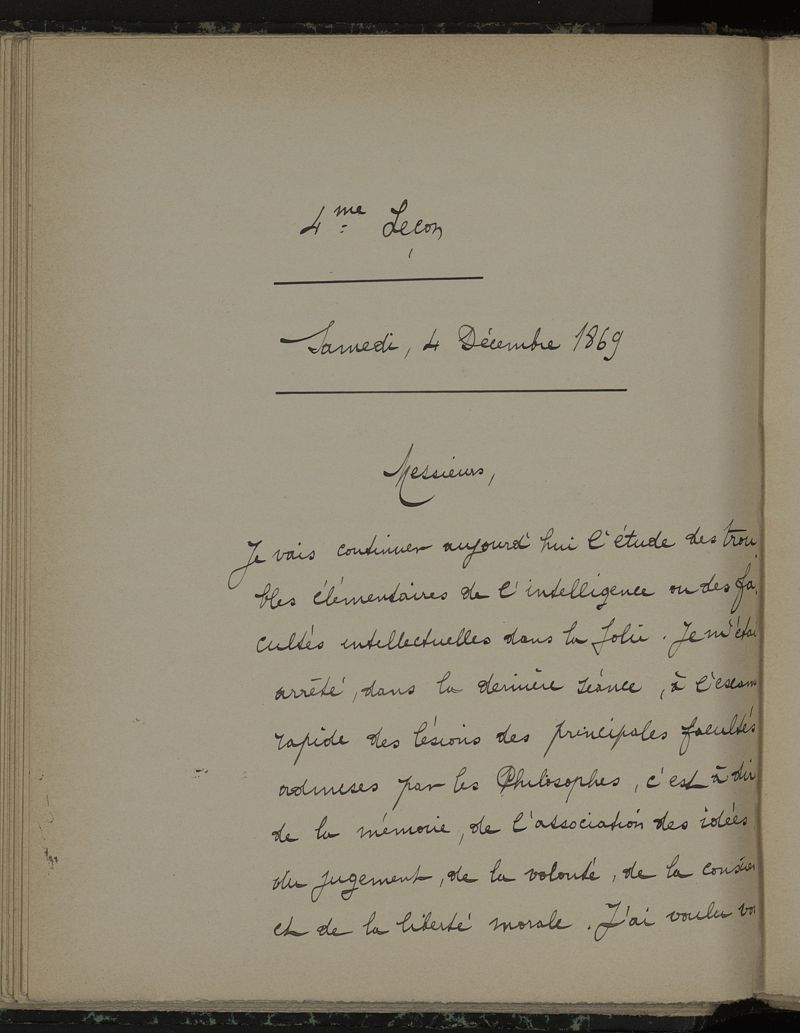 4me Leçon
Samedi, 4 Décembre 1869
Messieurs,
Je vais continuer aujourd'hui l'étude des trou
bles élémentaires de l'intelligence ou des fa
cultés intellectuelles dans la folie. Je m'étai
arrêté, dans la dernière séance, à l'exam
rapide des lésions des principales facultés
admises par les Philosophes, c'est à dir
de la mémoire, de l'association des idées
du jugement, de la volonté, de la
et de la liberté morale. J'ai voulu